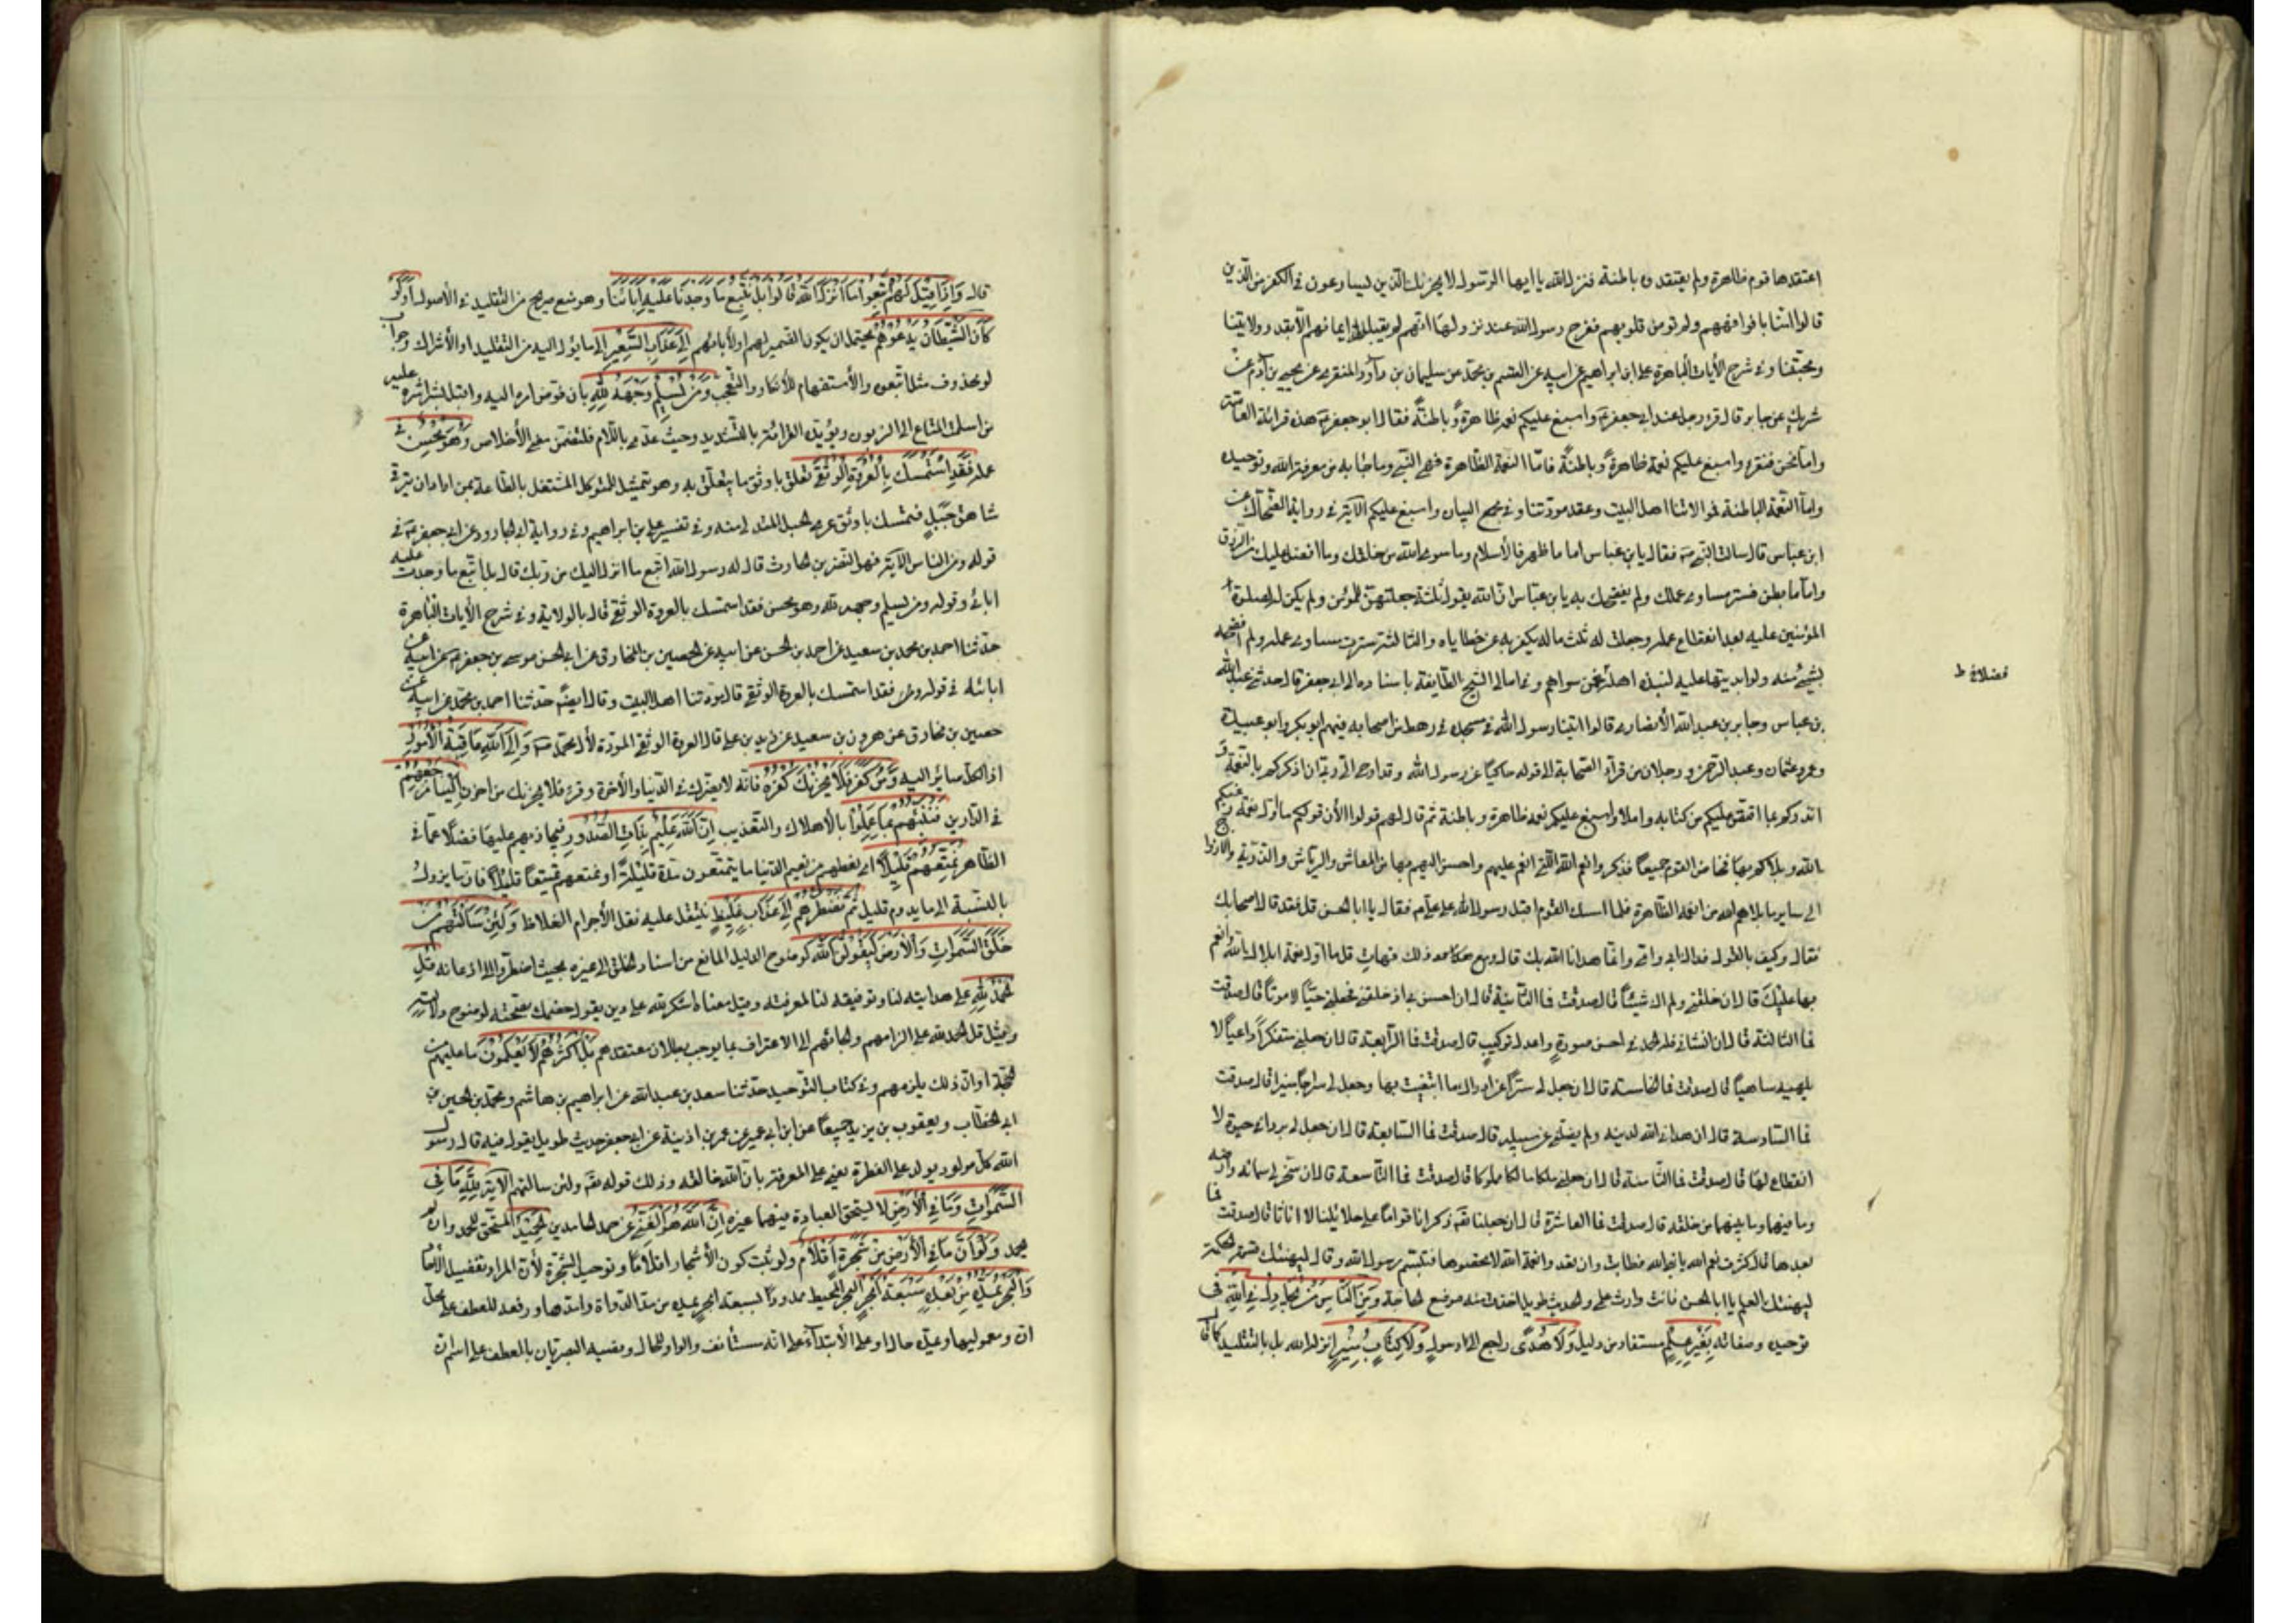 اعتقدها قوم ظاهرة ولم يعتقدوا باطنة فنزل الله يا ايها الرسول لا يحزنك الذين يسارعون في الكفر من الذين
قالوا امنا بافواههم ولم تؤمن قلوبهم ففرح رسول الله عند نزولها انهم لم يقبل الله ايمانهم الا بعقد ولايتنا
ومحبتنا وفي شرح الآيات الباهرة علي ابن ابراهيم عن ابيه عن القسم بن محمد عن سليمان بن داود المنقري عن يحيى بن آدم عن
شريك عن جابر قال قرء رجل عند ابي جعفر ع واسبغ عليكم نعمه ظاهرة وباطنة فقال ابو جعفر ع هذه قرائة العامة
واما نحن فنقرء واسبغ عليكم نعمة ظاهرة وباطنة فاما النعمة الظاهرة فهي النبي وما جاء به من معرفة الله وتوحيده
واما النعمة الباطنة فولايتنا اهل البيت وعقد مودتنا وفي مجمع البيان واسبغ عليكم الآية في رواية الضحاك عن
ابن عباس قال سالت النبي ص فقال يا بن عباس اما ما ظهر فالأسلام وما سوى الله من خلقك وما افضل عليك من الرزق
واما ما بطن فستر مساوي عملك ولم يفضحك به يا بن عباس ان الله يقول ثلثة جعلتهن للمؤمن ولم يكن له صلوة
المؤمنين عليه بعد انقطاع عمله وجعلت له ثلث ماله يكفر به عن خطاياه والثالثة سترت مساوي عمله ولم افضحه
بشيء منه ولو ابديتها عليه لنبذه اهله فمن سواهم وفي امالي الشيخ الطايفة باسناده الى ابي جعفر قال حدثني عبد الله
فضلا ظ
بن عباس وجابر بن عبد الله الأنصاري قالوا اتينا رسول الله في مسجده في رهط من اصحابه فيهم ابو بكر وابو عبيدة
وعمر وعثمان وعبد الرحمن ورجلان من قراء الصحابة الى قوله حاكيا عن رسول الله وقد اوحى الي ربي ان اذكركم بالنعمة
انذركم بما اقتص عليكم من كتابه واملا واسبغ عليكم نعمه ظاهرة وباطنة ثم قال لهم قولوا الأن قولكم ما اول نعمة
الله وبلاكم بها فخاض القوم جميعا فذكروا نعم الله التي انعم عليهم واحسن اليهم بها من المعاش والرياش والذرية والازواج
الى ساير ما بلاهم الله من انعمه الظاهرة فلما امسك القوم اقبل رسول الله على علي ع فقال يا ابا الحسن قل فقد قال اصحابك
فقال وكيف بالقول فداك ابي وامي وانما هدانا الله بك قال ومع ذلك فهات قل ما اول نعمة ابلاك الله وانعم
بها عليك قال ان خلقني ولم اك شيئا قال صدقت فما الثانية قال ان احسن بي اذ خلقني فجعلني حيا لا مواتا قال صدقت
فما الثالثة قال ان انشاني فله الحمد في احسن صورة واعدل تركيب قال صدقت فما الرابعة قال ان جعلني متفكرا واعيا لا
بلهيه ساهيا قال صدقت فما الخامسة قال ان جعل لي شواعر ادرك ما ابتغيت بها وجعل لي سراجا منيرا قال صدقت
فما السادسة قال ان هداني الله لدينه ولم يضلني عن سبيله قال صدقت فما السابعة قال ان جعل لي مردا في حيوة لا
انقطاع لها قال صدقت فما الثامنة قال ان جعلني ملكا مالكا لا مملوكا قال صدقت فما التاسعة قال ان سخر لي سمائه وارضه
وما فيهما وما بينهما من خلقه قال صدقت فما العاشرة قال ان جعلنا سبحانه ذكرانا قواما على حلائلنا لا اناثا قال صدقت فما
بعدها قال كثرت نعم الله يا نبي الله فطابت وان تعدوا نعمة الله لا تحصوها فتبسم رسول الله وقال ليهنئك الحكمة
ليهنئك العلم يا ابا الحسن فانت وارث علمي والحديث طويل اخذت منه موضع الحاجة ومن الناس من يجادل في الله في
توحيده وصفاته بغير علم مستفاد من دليل ولا هدى راجع الى رسول ولا كتاب منير انزله الله بل بالتقليد كما
قال واذا قيل لهم اتبعوا ما انزل الله قالوا بل نتبع ما وجدنا عليه اباءنا وهو منع صريح من التقليد في الأصول اولو
كان الشيطان يدعوهم يحتمل ان يكون الضمير لهم ولأبائهم الى عذاب السعير الى ما يؤل اليه من التقليد او الأشراك وجواب
لو محذوف مثل لاتبعوه والأستفهام للأنكار والتعجب ومن يسلم وجهه لله بان فوض امره اليه واقبل بشراشره عليه
من اسلمت المتاع الى الزبون ويؤيده القرائة بالتشديد وحيث عدي باللام فلتضمن معنى الأخلاص وهو محسن في
عمله فقد استمسك بالعروة الوثقى تعلق باوثق ما يتعلق به وهو تمثيل للمتوكل المشتغل بالطاعة بمن اراد ان يترقى
شاهق جبل فتمسك باوثق عرى الحبل المتدلي منه وفي تفسير علي بن ابراهيم وفي رواية ابي الجارود عن ابي جعفر ع في
قوله ومن الناس الآية فهو النضر بن الحارث قال له رسول الله اتبع ما انزل اليك من ربك قال بل اتبع ما وجدت عليه
ابائي وقوله ومن يسلم وجهه لله وهو محسن فقد استمسك بالعروة الوثقى قال بالولاية وفي شرح الآيات الباهرة
حدثنا احمد بن محمد بن سعيد عن احمد بن الحسن عن ابيه عن الحصين بن المخارق عن ابي الحسن موسى بن جعفر ع عن ابيه عن
ابائه في قوله عز وجل فقد استمسك بالعروة الوثقى قال مودتنا اهل البيت وقال ايضا حدثنا احمد بن محمد عن ابيه عن
حصين بن مخارق عن هرون بن سعيد عن زيد بن علي قال العروة الوثقى المودة لأل محمد ص والى الله عاقبة الأمور
اذ الكل صائر اليه ومن كفر فلا يحزنك كفره فانه لا يضرك في الدنيا والأخرة وقرء فلا يحزنك من احزن الينا مرجعهم
في الدارين فننبئهم بما عملوا بالأهلاك والتعذيب ان الله عليم بذات الصدور فيجازيهم عليها فضلا عما في
الظاهر نمتعهم قليلا اي نعطهم من نعيم الدنيا ما يتمتعون مدة قليلة او نمتعهم تمتيعا قليلا فان ما يزول
بالنسبة الى ما يدوم قليل ثم نضطرهم الى عذاب غليظ يثقل عليه ثقل الأجرام الغلاظ ولئن سالتهم من
خلق السموات والأرض ليقولن الله لوضوح الدليل المانع من اسناد الخلق الى غيره بحيث اضطروا الى اذعانه قل
الحمد لله على هدايته لنا وتوفيقه لنا لمعرفته وقيل معناه اشكر لله على دين يقول خصمك بصحته لوضوح دلالته
وقيل قل الحمد لله على الزامهم والجائهم الى الاعتراف بما يوجب بطلان معتقدهم بل اكثرهم لا يعلمون ما عليهم من
الحجة او ان ذلك يلزمهم وفي كتاب التوحيد حدثنا سعد بن عبد الله عن ابراهيم بن هاشم ومحمد بن الحسين بن
ابي الخطاب ويعقوب بن يزيد جميعا عن ابن ابي عمير عن عمر بن اذينة عن ابي جعفر حديث طويل يقول فيه قال رسول
الله كل مولود يولد على الفطرة يعني على المعرفة بان الله خالقه وذلك قوله ولئن سالتهم الآية لله ما في
السموات وما في الأرض لا يستحق العبادة فيهما غيره ان الله هو الغني عن حمد الحامدين الحميد المستحق للحمد وان لم
يحمد ولو ان ما في الأرض من شجرة اقلام ولو ثبت كون الأشجار اقلاما وتوحيد الشجرة لأن المراد تفصيل الأحاد
والبحر يمده من بعده سبعة ابحر البحر المحيط ممدودا بسبعة ابحر يمده من مد الدواة وامدها ورفعه للعطف على محل
ان ومعموليها ويمده حال او على الأبتداء على انه مستانف والواو للحال ونصبه البصريان بالعطف على اسم ان